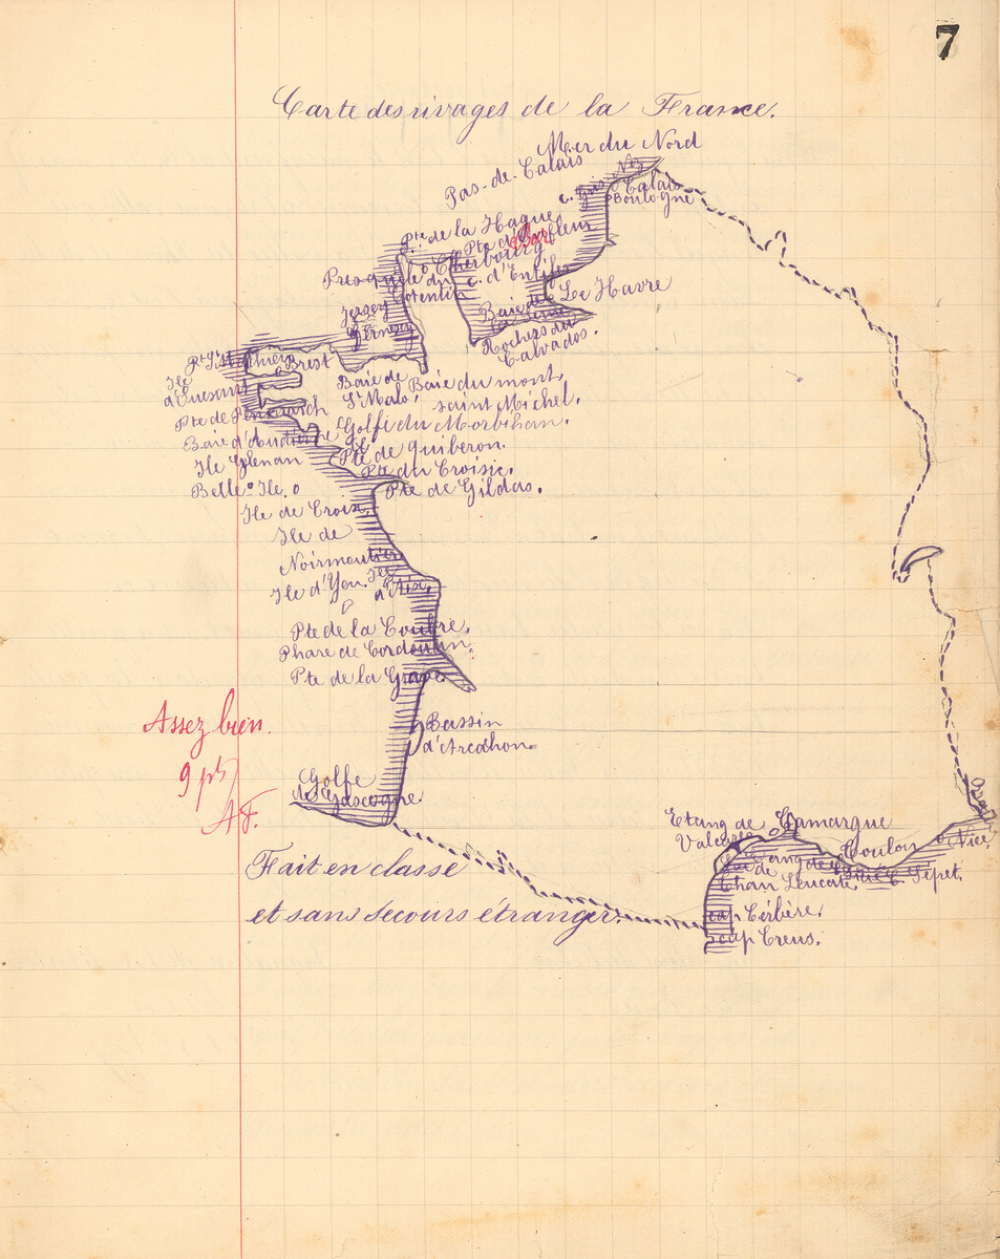 7
Carte des rivages de la France.
Mer du Nord
Pas-de-Calais
c. Gris Nez
Calais
Boulogne
Pte de la Hague
Pte de Barfleur
Cherbourg
Presqu'ile du
Cotentin
c. d'Antifer
Le Havre
Baie de
la Seine
Rochers du
Calvados.
Jersey
Pt St Mathieu
Brest
Ile
d'Ouessant
Baie de
St Malo.
Baie du mont
saint Michel.
Pte de Penmarch
Golfe du Morbihan.
Baie d'Audierne
Pte de Quiberon.
Ile Glenan
Pte du Croisic.
Belle-Ile.
Pte de Gildas.
Ile de Croix.
Ile de
Noirmoutier
Ile d'Yeu.
Ile
d'Aix.
Pte de la Coubre.
Phare de Cordouan.
Pte de la Grave.
Assez bien.
9 pts
A.F.
Bassin
d'Arcachon.
Golfe
de Gascogne.
Etang de
Valcares
Camargue
Toulon
Nice.
C. Sépet.
Leucate.
cap Cérbère.
cap Creus.
Fait en classe
et sans secours étranger.